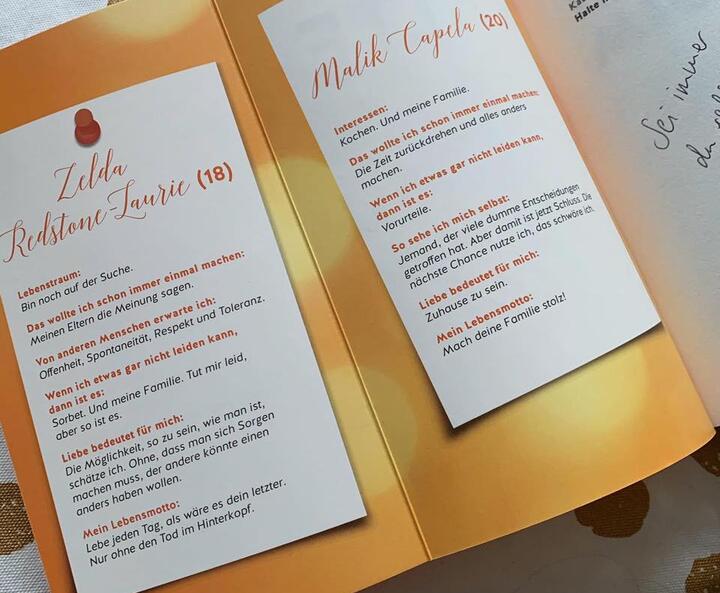 Zelda
Redstone-Laurie (18)
Lebenstraum:
Bin noch auf der Suche.
Das wollte ich schon immer einmal machen:
Meinen Eltern die Meinung sagen.
Von anderen Menschen erwarte ich:
Offenheit, Spontaneität, Respekt und Toleranz.
Wenn ich etwas gar nicht leiden kann,
dann ist es:
Sorbet. Und meine Familie. Tut mir leid,
aber so ist es.
Liebe bedeutet für mich:
Die Möglichkeit, so zu sein, wie man ist,
schätze ich. Ohne, dass man sich Sorgen
machen muss, der andere könnte einen
anders haben wollen.
Mein Lebensmotto:
Lebe jeden Tag, als wäre es dein letzter.
Nur ohne den Tod im Hinterkopf.
Malik Capela (20)
Interessen:
Kochen. Und meine Familie.
Das wollte ich schon immer einmal machen:
Die Zeit zurückdrehen und alles anders
machen.
Wenn ich etwas gar nicht leiden kann,
dann ist es:
Vorurteile.
So sehe ich mich selbst:
Jemand, der viele dumme Entscheidungen
getroffen hat. Aber damit ist jetzt Schluss. Die
nächste Chance nutze ich, das schwöre ich.
Liebe bedeutet für mich:
Zuhause zu sein.
Mein Lebensmotto:
Mach deine Familie stolz!
Halte
Sei immer
du